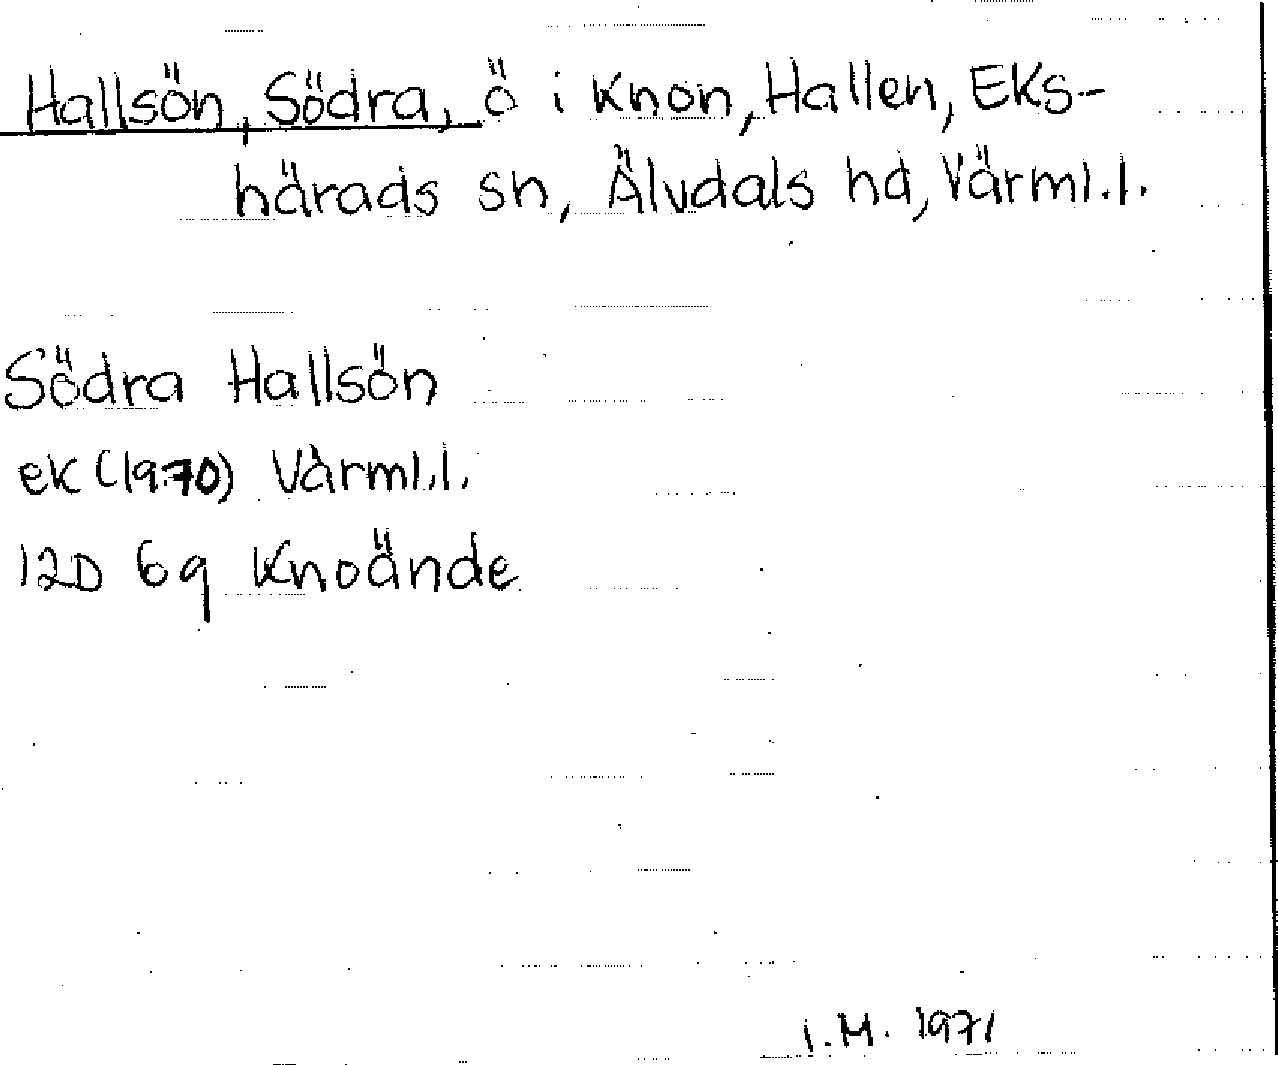 Hallsön, Södra, ö i Knon, Hallen, Eks-
härads sn, Älvdals hd, Värml.l.
Södra Hallsön
ek (1970) Värml.l.
12D 6q Knoände
I.M. 1971